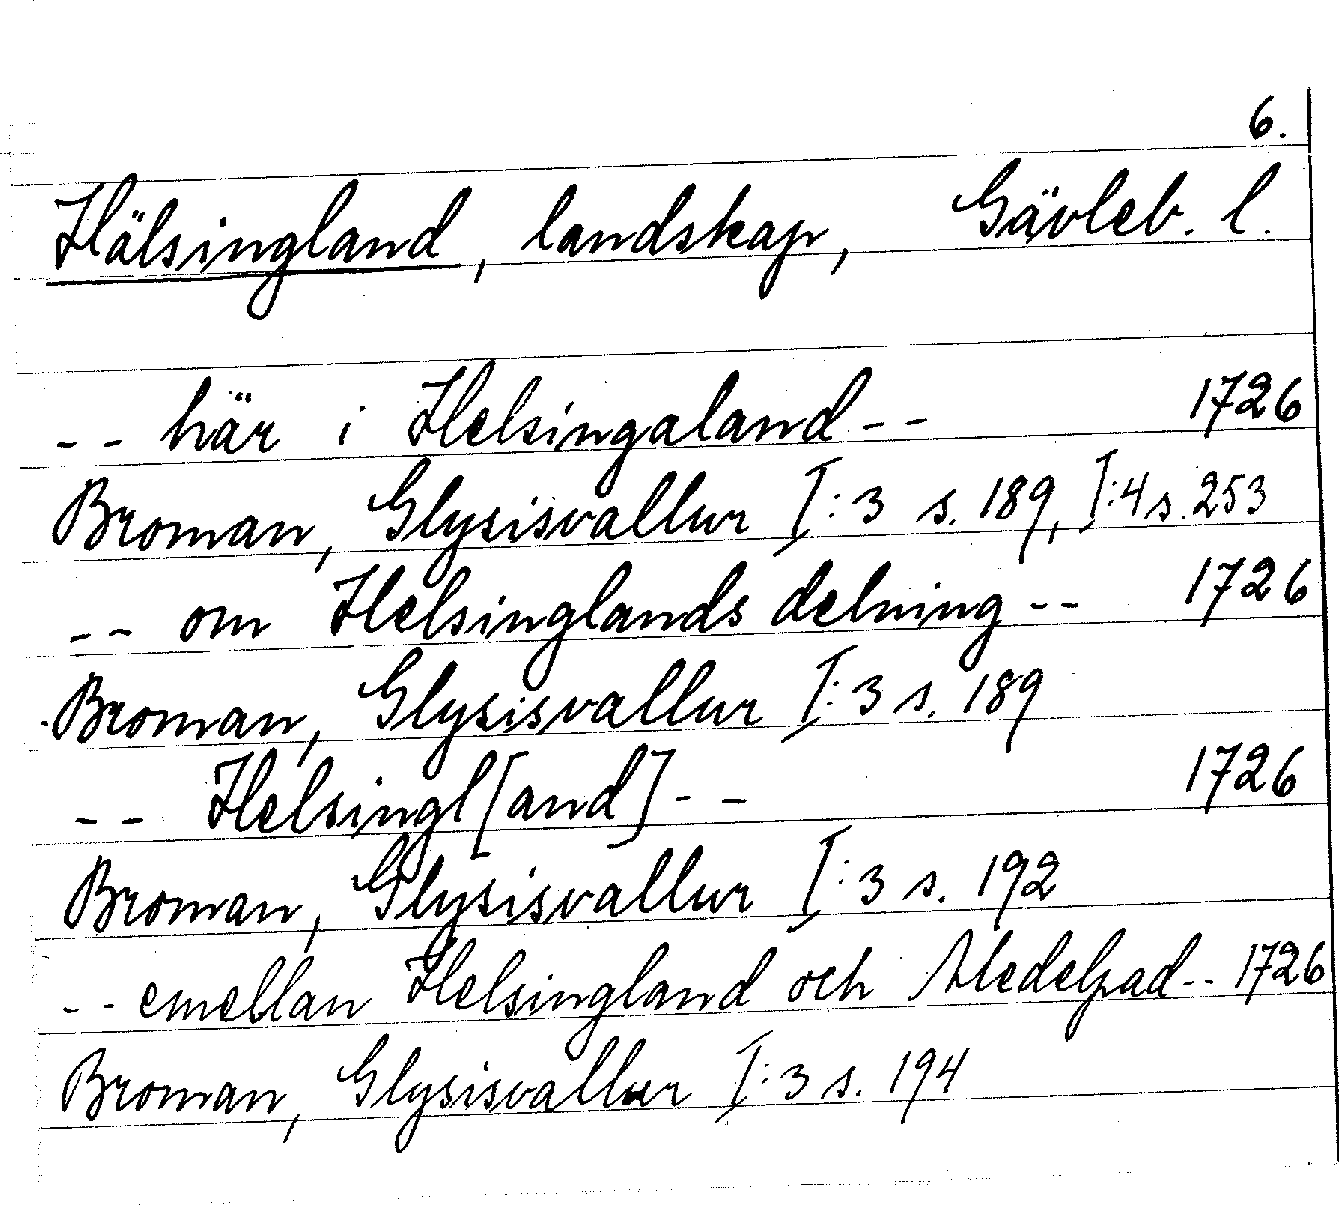 6.
Hälsingland, landskap, Gävleb. l.
-- här i Helsingaland -- 1726
Broman, Glysisvallur I:3 s. 189, I:4 s. 253
-- om Helsinglands delning -- 1726
Broman, Glysisvallur I:3 s. 189
-- Helsingl[and] -- 1726
Broman, Glysisvallur I:3 s. 192
-- emellan Helsingland och Medelpad -- 1726
Broman, Glysisvallur I:3 s. 194